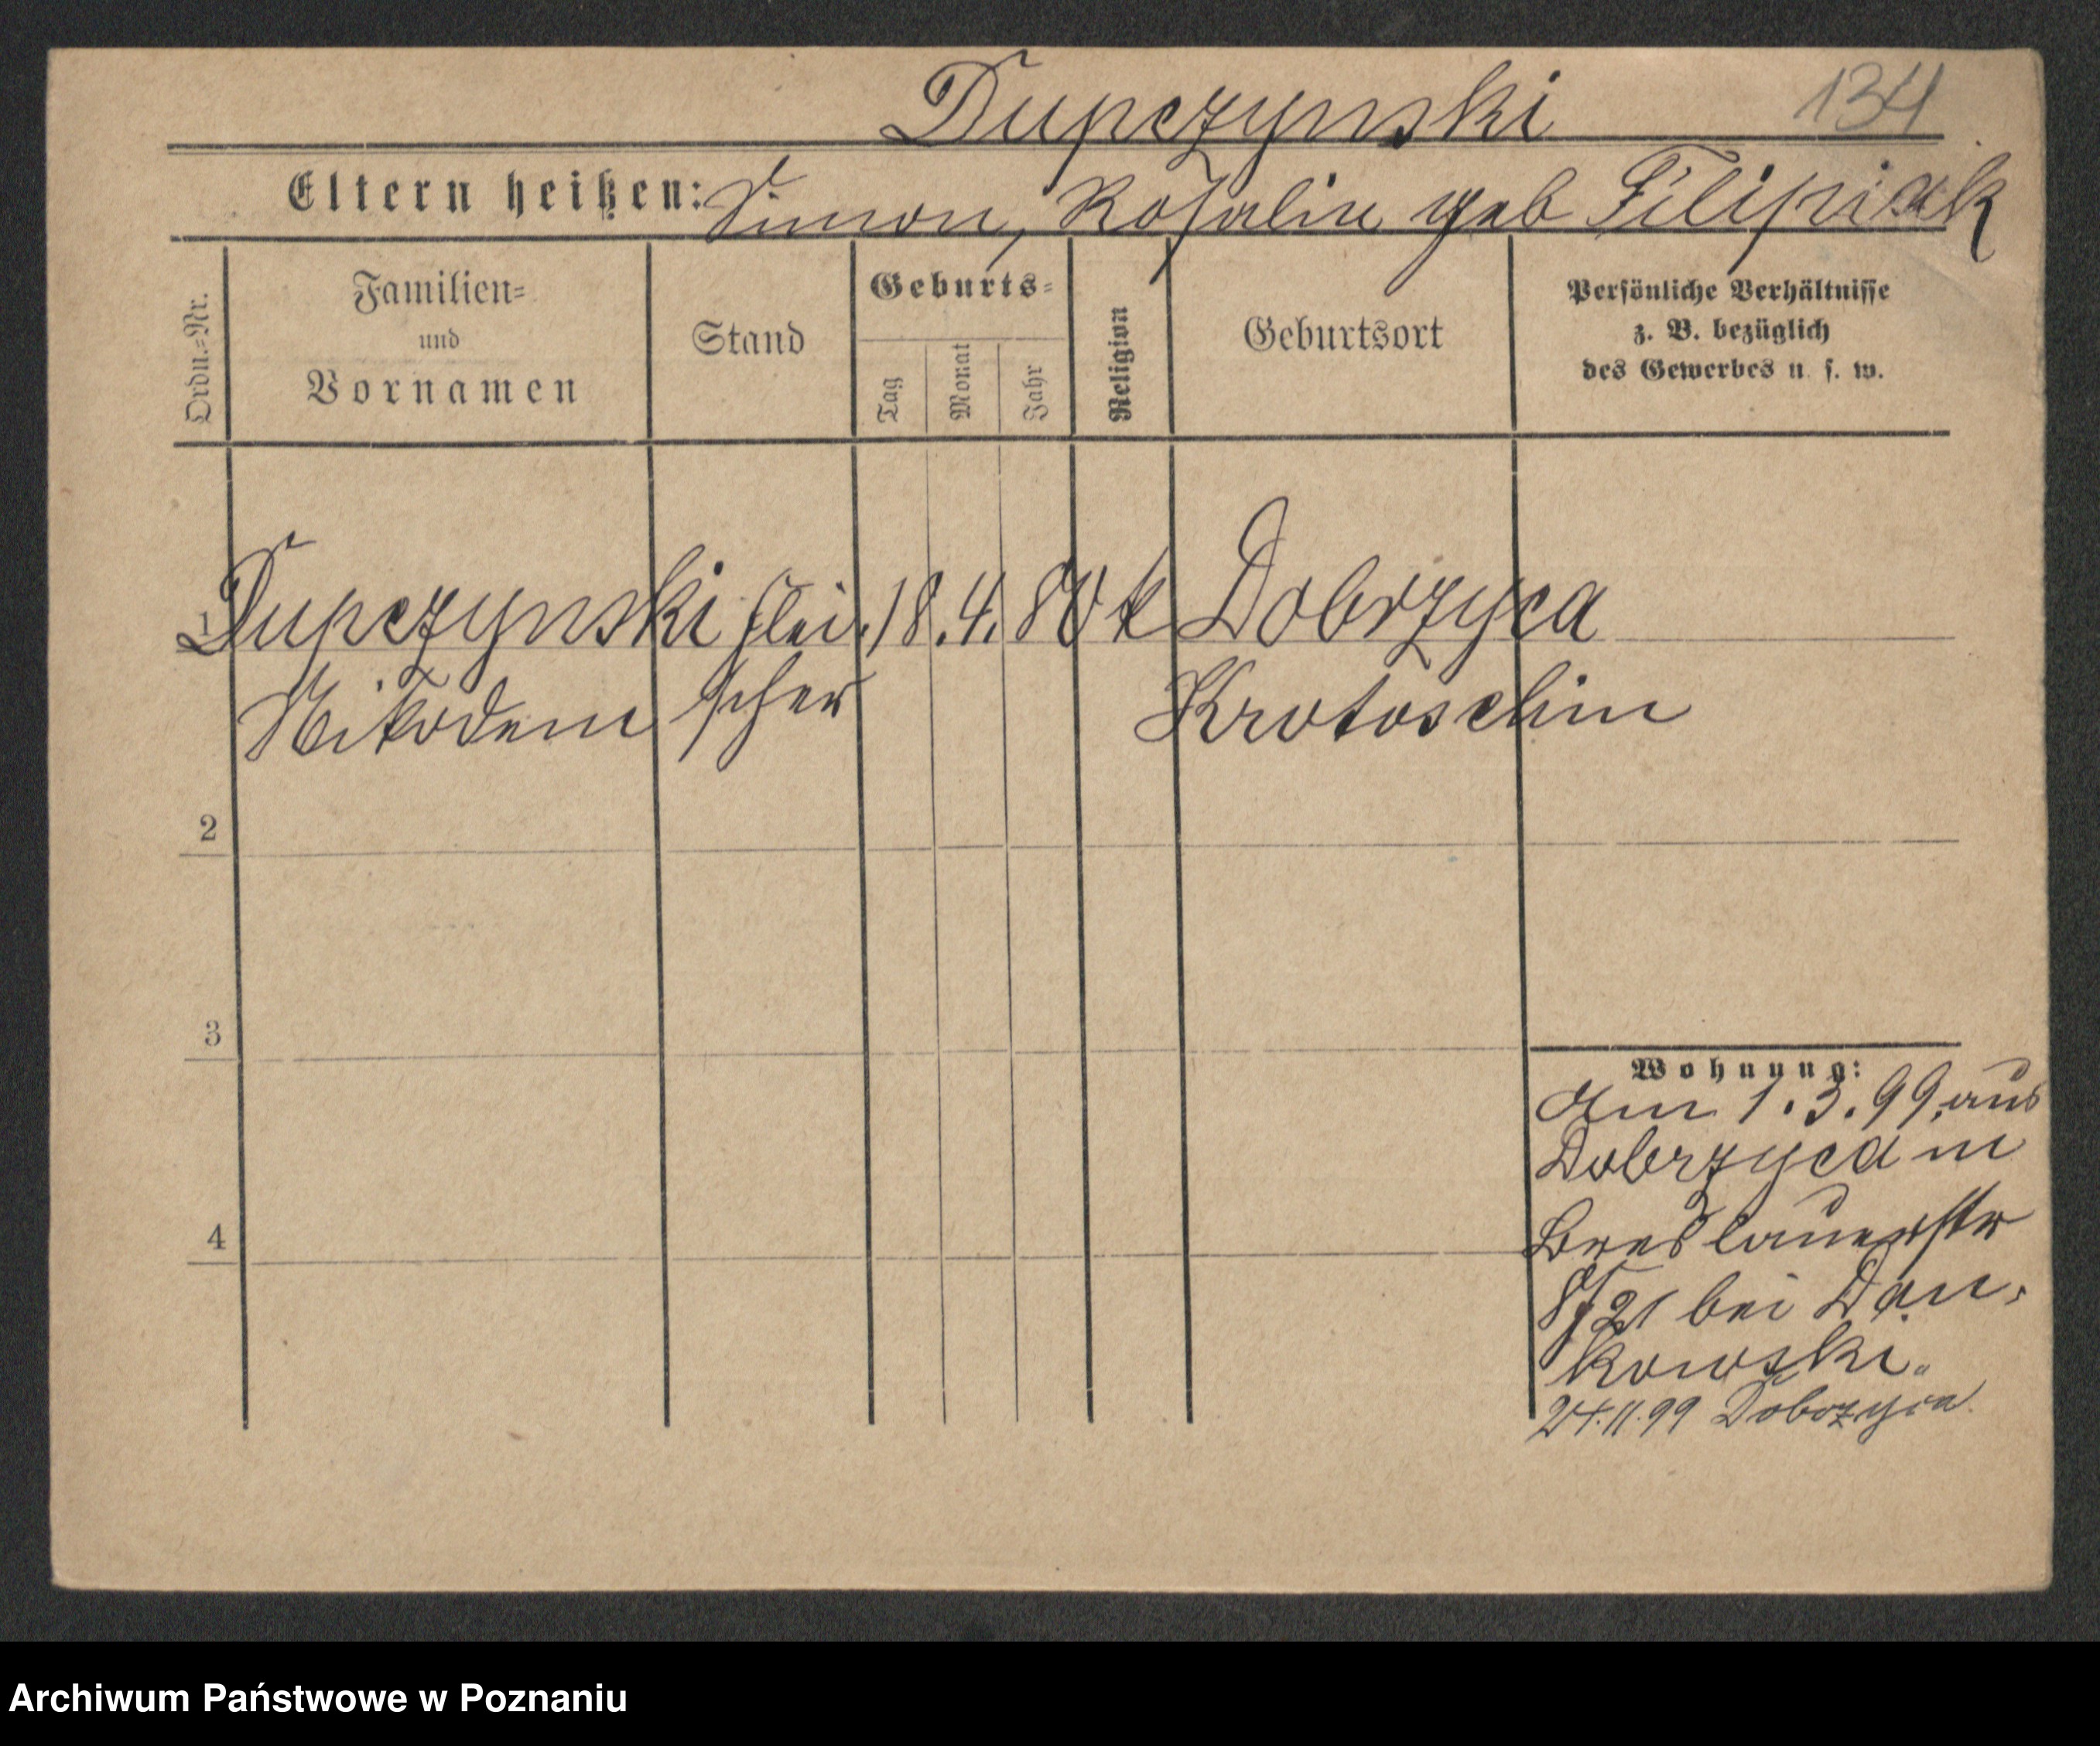 Dupczynski 134
Eltern heißen: Simon, Rosalie geb Filipiak
Ordn.=Nr.
Familien=
und
Vornamen
Stand
Geburts=
Tag
Monat
Jahr
Religion
Geburtsort
Persönliche Verhältnisse
z. B. bezüglich
des Gewerbes u. s. w.
1 Dupczynski Flei. 18. 4. 80 k Dobrzyca
Nikodem scher Krotoschin
2
3
4
Wohnung:
Am 1. 3. 99. aus
Dobrzyca in
Breslauerstr
8/21 bei Dan,
kowski.
24.11.99 Dobrzyca
Archiwum Państwowe w Poznaniu